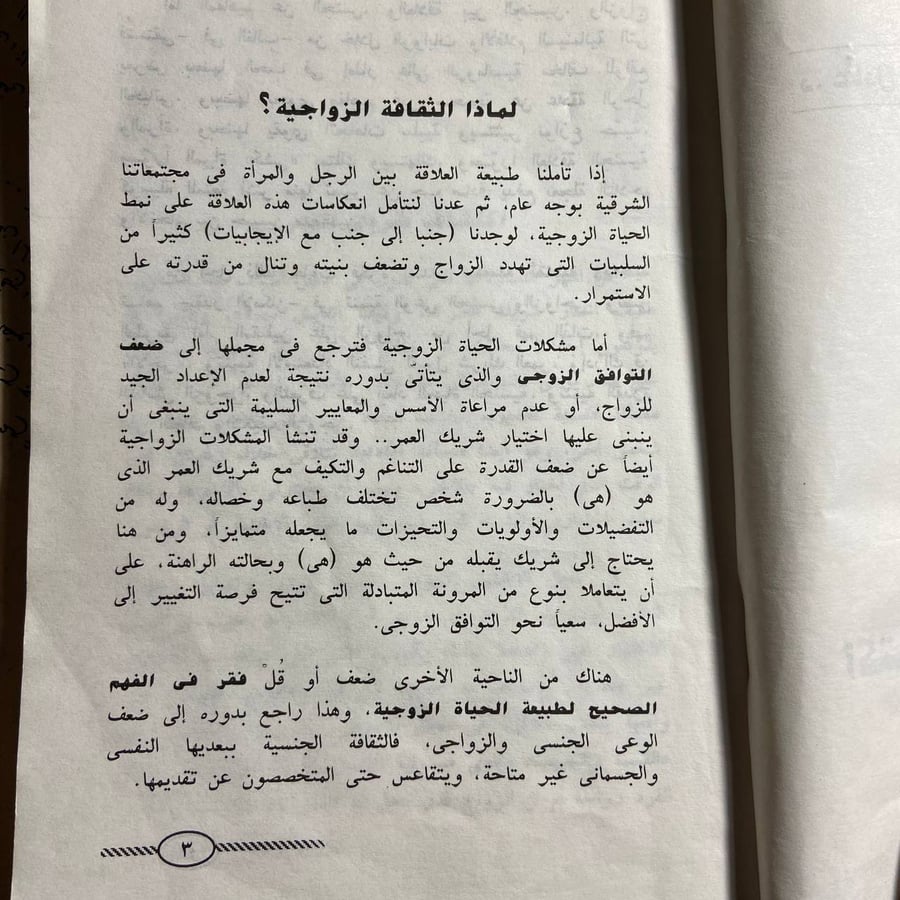 لماذا الثقافة الزواجية؟
إذا تأملنا طبيعة العلاقة بين الرجل والمرأة فى مجتمعاتنا
الشرقية بوجه عام، ثم عدنا لنتأمل انعكاسات هذه العلاقة على نمط
الحياة الزوجية، لوجدنا (جنبا إلى جنب مع الإيجابيات) كثيراً من
السلبيات التى تهدد الزواج وتضعف بنيته وتنال من قدرته على
الاستمرار.
أما مشكلات الحياة الزوجية فترجع فى مجملها إلى ضعف
التوافق الزوجى والذى يتأتىّ بدوره نتيجة لعدم الإعداد الجيد
للزواج، أو عدم مراعاة الأسس والمعايير السليمة التى ينبغى أن
ينبنى عليها اختيار شريك العمر.. وقد تنشأ المشكلات الزواجية
أيضاً عن ضعف القدرة على التناغم والتكيف مع شريك العمر الذى
هو (هى) بالضرورة شخص تختلف طباعه وخصاله، وله من
التفضيلات والأولويات والتحيزات ما يجعله متمايزاً، ومن هنا
يحتاج إلى شريك يقبله من حيث هو (هى) وبحالته الراهنة، على
أن يتعاملا بنوع من المرونة المتبادلة التى تتيح فرصة التغيير إلى
الأفضل، سعياً نحو التوافق الزوجى.
هناك من الناحية الأخرى ضعف أو قُلْ فقر فى الفهم
الصحيح لطبيعة الحياة الزوجية، وهذا راجع بدوره إلى ضعف
الوعى الجنسى والزواجى، فالثقافة الجنسية ببعديها النفسى
والجسمانى غير متاحة، ويتقاعس حتى المتخصصون عن تقديمها.
٣